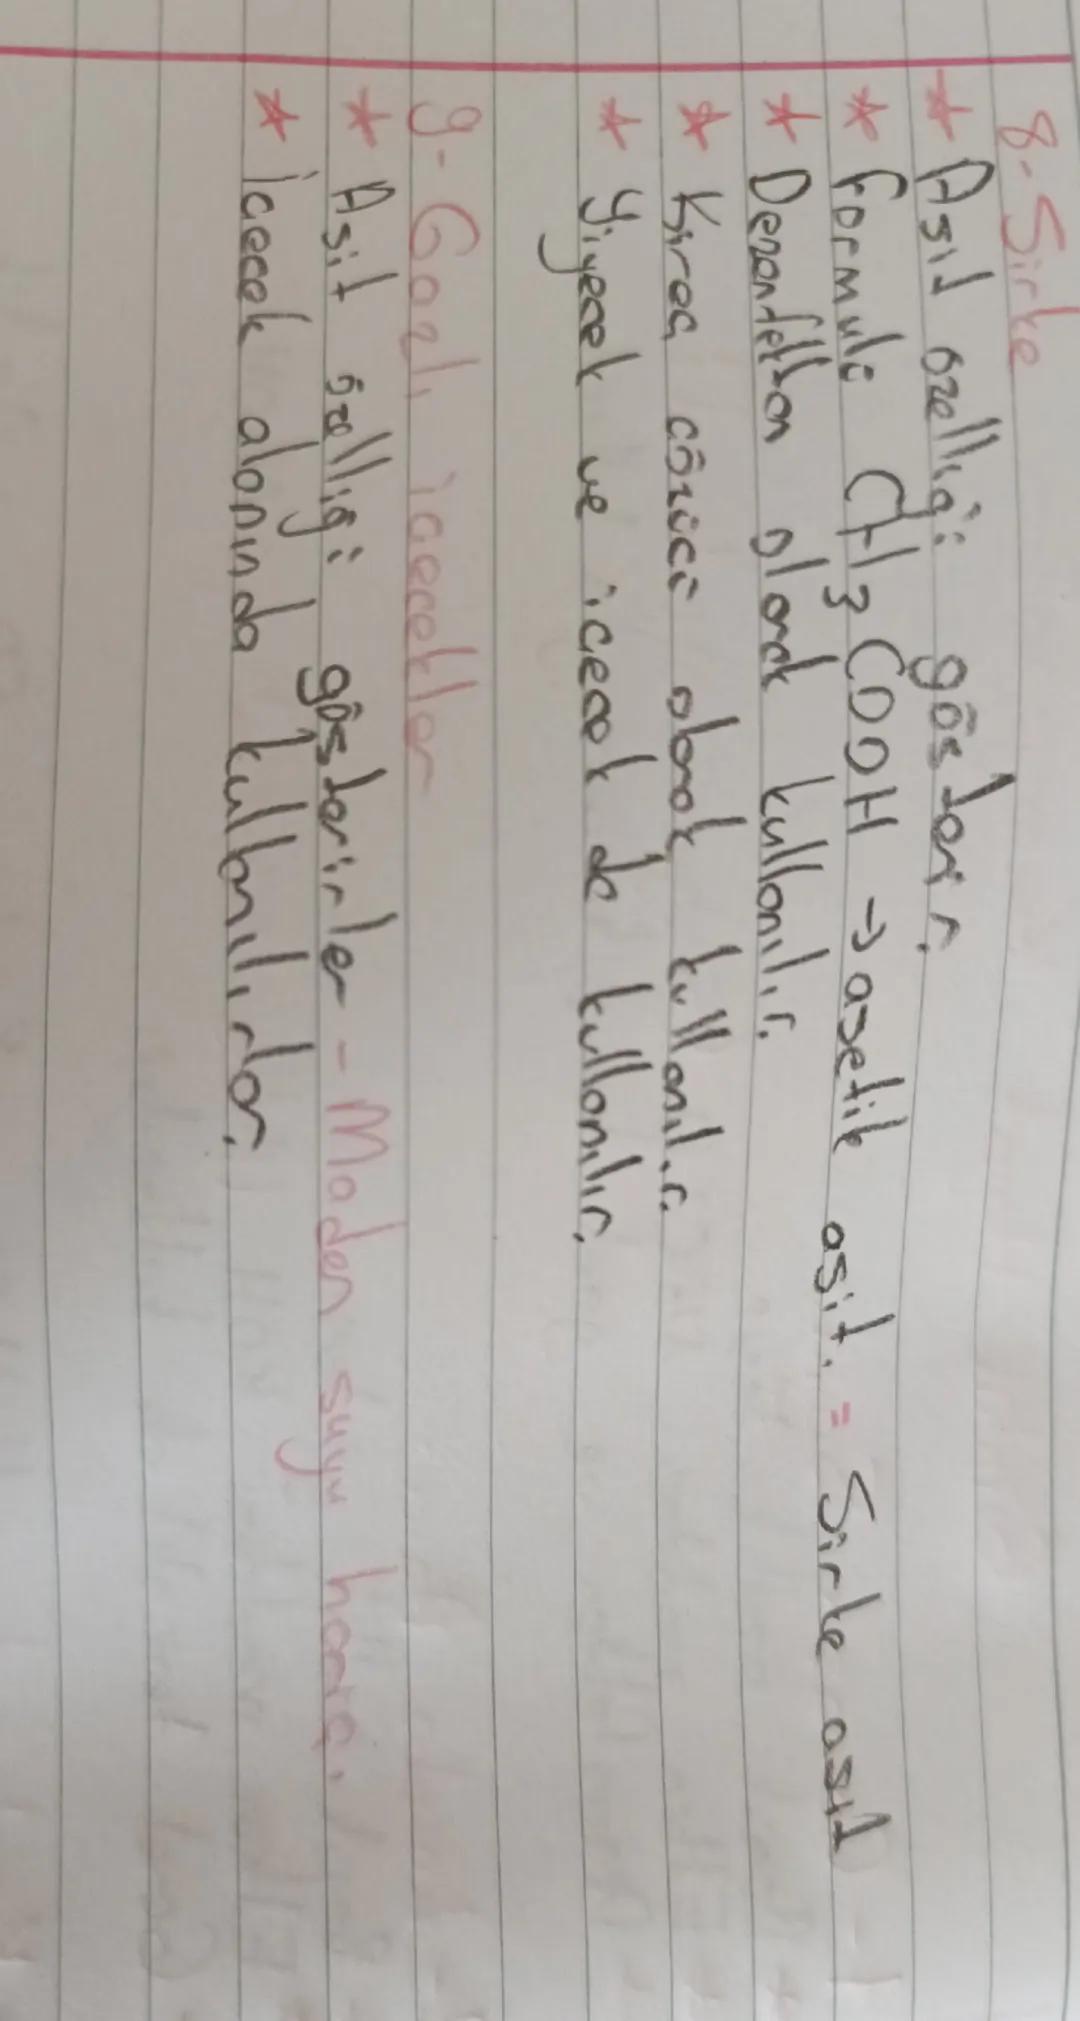 8-Sirke
* Asit özelliği gösterir.
* Formülü CH3COOH → asetik asit. = Sirke asit
* Dezenfekton olarak kullanılır.
* Kireç çözücü olarak kullanılır.
* Yiyecek ve içecek de kullanılır.
9-Gazlı içecekler
* Asit özelliği gösterirler - Maden suyu hariç.
* İçecek alanında kullanılırlar.